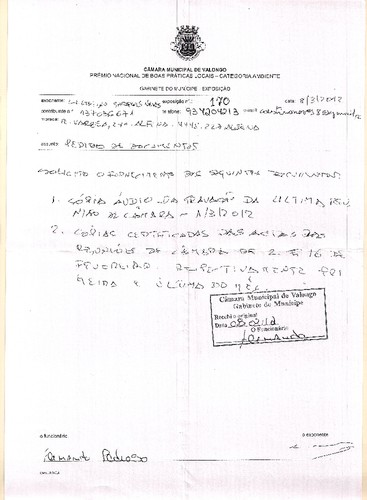 CÂMARA MUNICIPAL DE VALONGO
PRÉMIO NACIONAL DE BOAS PRÁTICAS LOCAIS - CATEGORIA AMBIENTE
GABINETE DO MUNÍCIPE - EXPOSIÇÃO
exponente: exposição nº: 170 data: 8/3/2012
contribuinte nº: telefone: 934204213 email:
morada: R.
assunto: PEDIDO DE DOCUMENTOS
SOLICITO O FORNECIMENTO DOS SEGUINTES DOCUMENTOS:
1. CÓPIA ÁUDIO DA GRAVAÇÃO DA ÚLTIMA REU
NIÃO DE CÂMARA - 1/3/2012
2. CÓPIAS CERTIFICADAS DAS ACTAS DAS
REUNIÕES DE CÂMARA DE 2 E 16 DE
FEVEREIRO, RESPECTIVAMENTE PRI
MEIRA E ÚLTIMA DO MÊS.
Câmara Municipal de Valongo
Gabinete do Munícipe
Recebi o original
Data
O Funcionário
Fernanda
o funcionário o exponente
Fernanda Pedroso